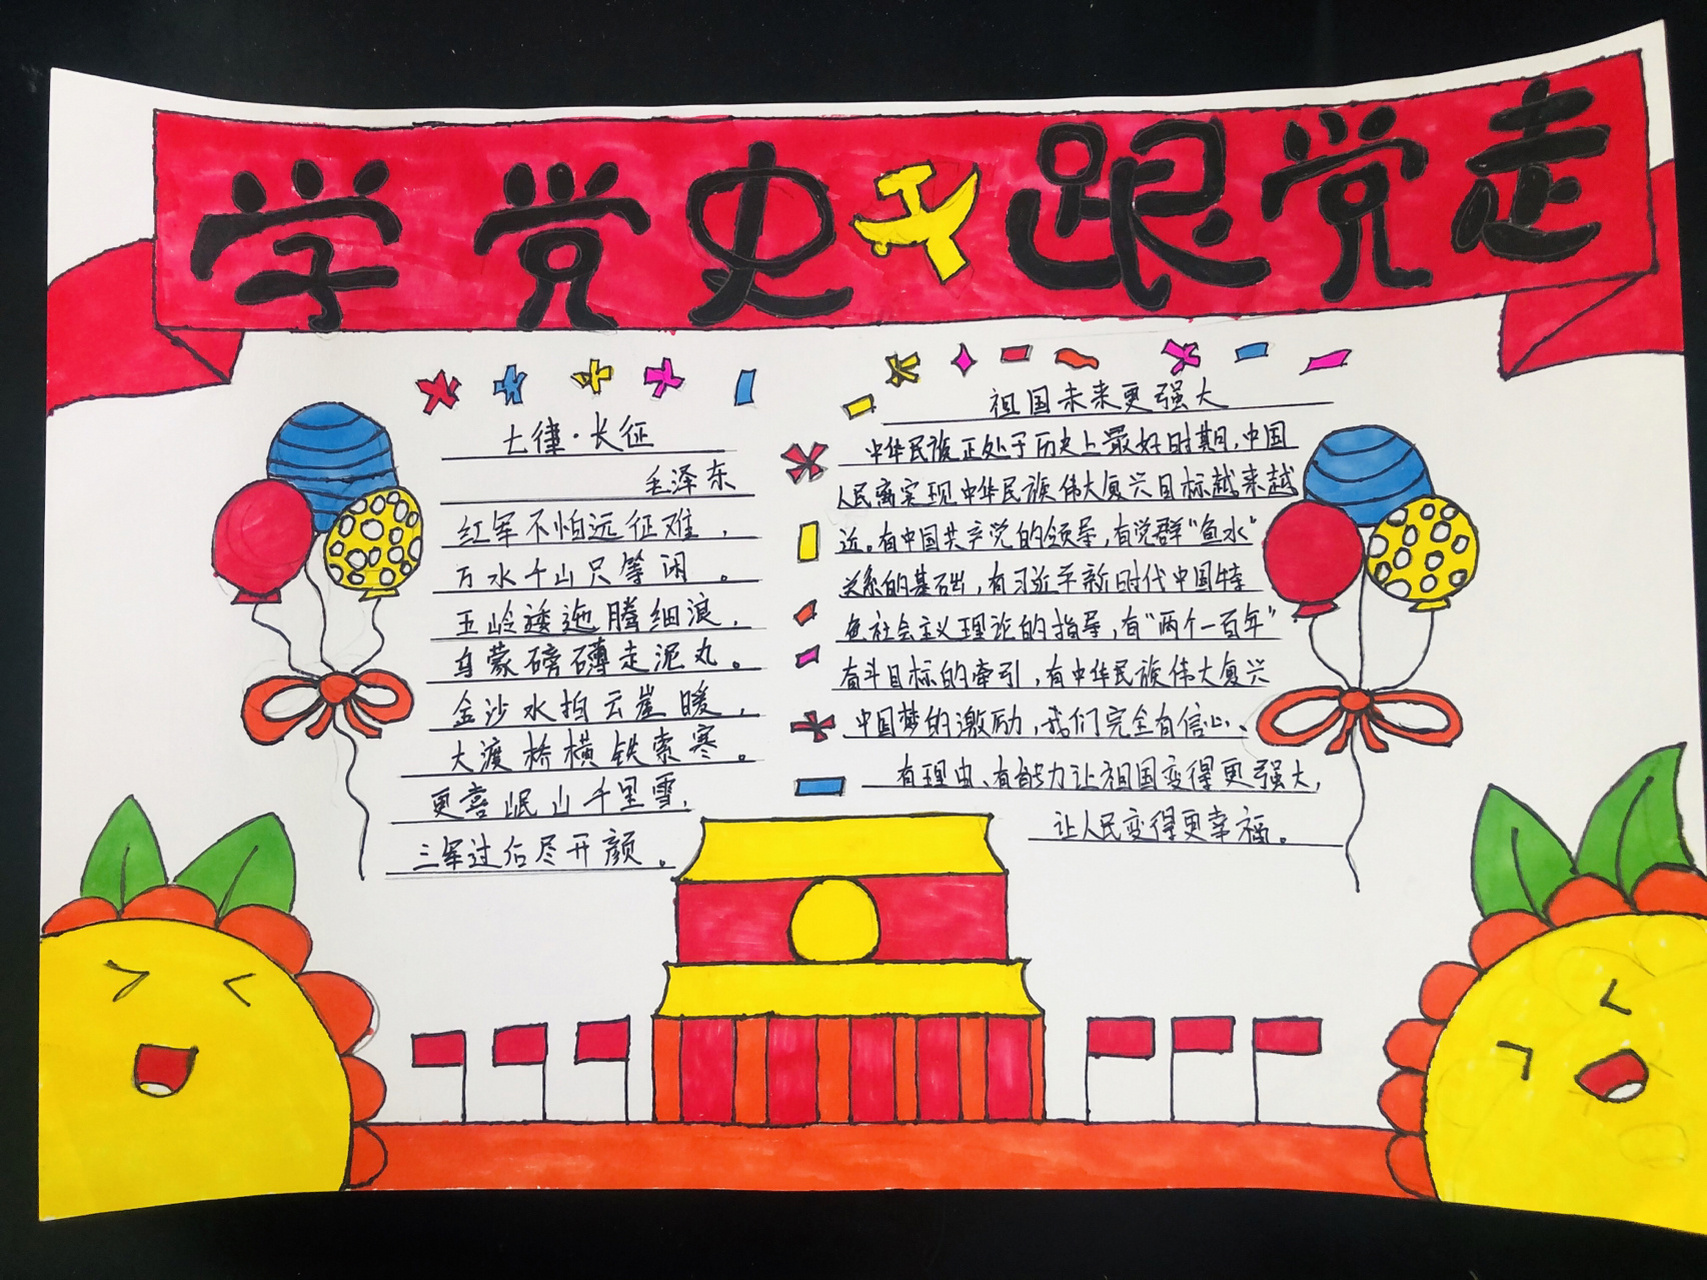 学党史跟党走
七律·长征
毛泽东
红军不怕远征难，
万水千山只等闲。
五岭逶迤腾细浪，
乌蒙磅礴走泥丸。
金沙水拍云崖暖，
大渡桥横铁索寒。
更喜岷山千里雪，
三军过后尽开颜。
祖国未来更强大
中华民族正处于历史上最好时期，中国
人民离实现中华民族伟大复兴目标越来越
近。有中国共产党的领导，有党群“鱼水”
关系的基础，有习近平新时代中国特
色社会主义理论的指导，有“两个一百年”
奋斗目标的牵引，有中华民族伟大复兴
中国梦的激励，我们完全有信心、
有理由、有能力让祖国变得更强大，
让人民变得更幸福。